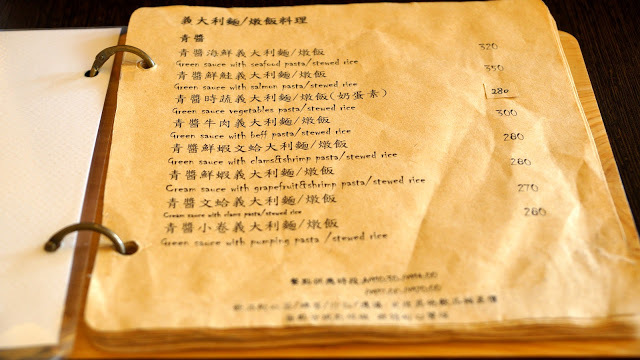 義大利麵/燉飯料理
青醬
青醬海鮮義大利麵/燉飯 320
Green sauce with seafood pasta/stewed rice
青醬鮮鮭義大利麵/燉飯 350
Green sauce with salmon pasta/stewed rice
青醬時蔬義大利麵/燉飯(奶蛋素) 280
Green sauce vegetables pasta/stewed rice
青醬牛肉義大利麵/燉飯 300
Green sauce with beff pasta/stewed rice
青醬鮮蝦文蛤大利麵/燉飯 280
Green sauce with clams&shrimp pasta/stewed rice
青醬鮮蝦義大利麵/燉飯 280
Cream sauce with grapefruit&shrimp pasta/stewed rice
青醬文蛤義大利麵/燉飯 270
Cream sauce with clams pasta/stewed rice
青醬小卷義大利麵/燉飯 280
Green sauce with pumping pasta /stewed rice
餐點供應時段: